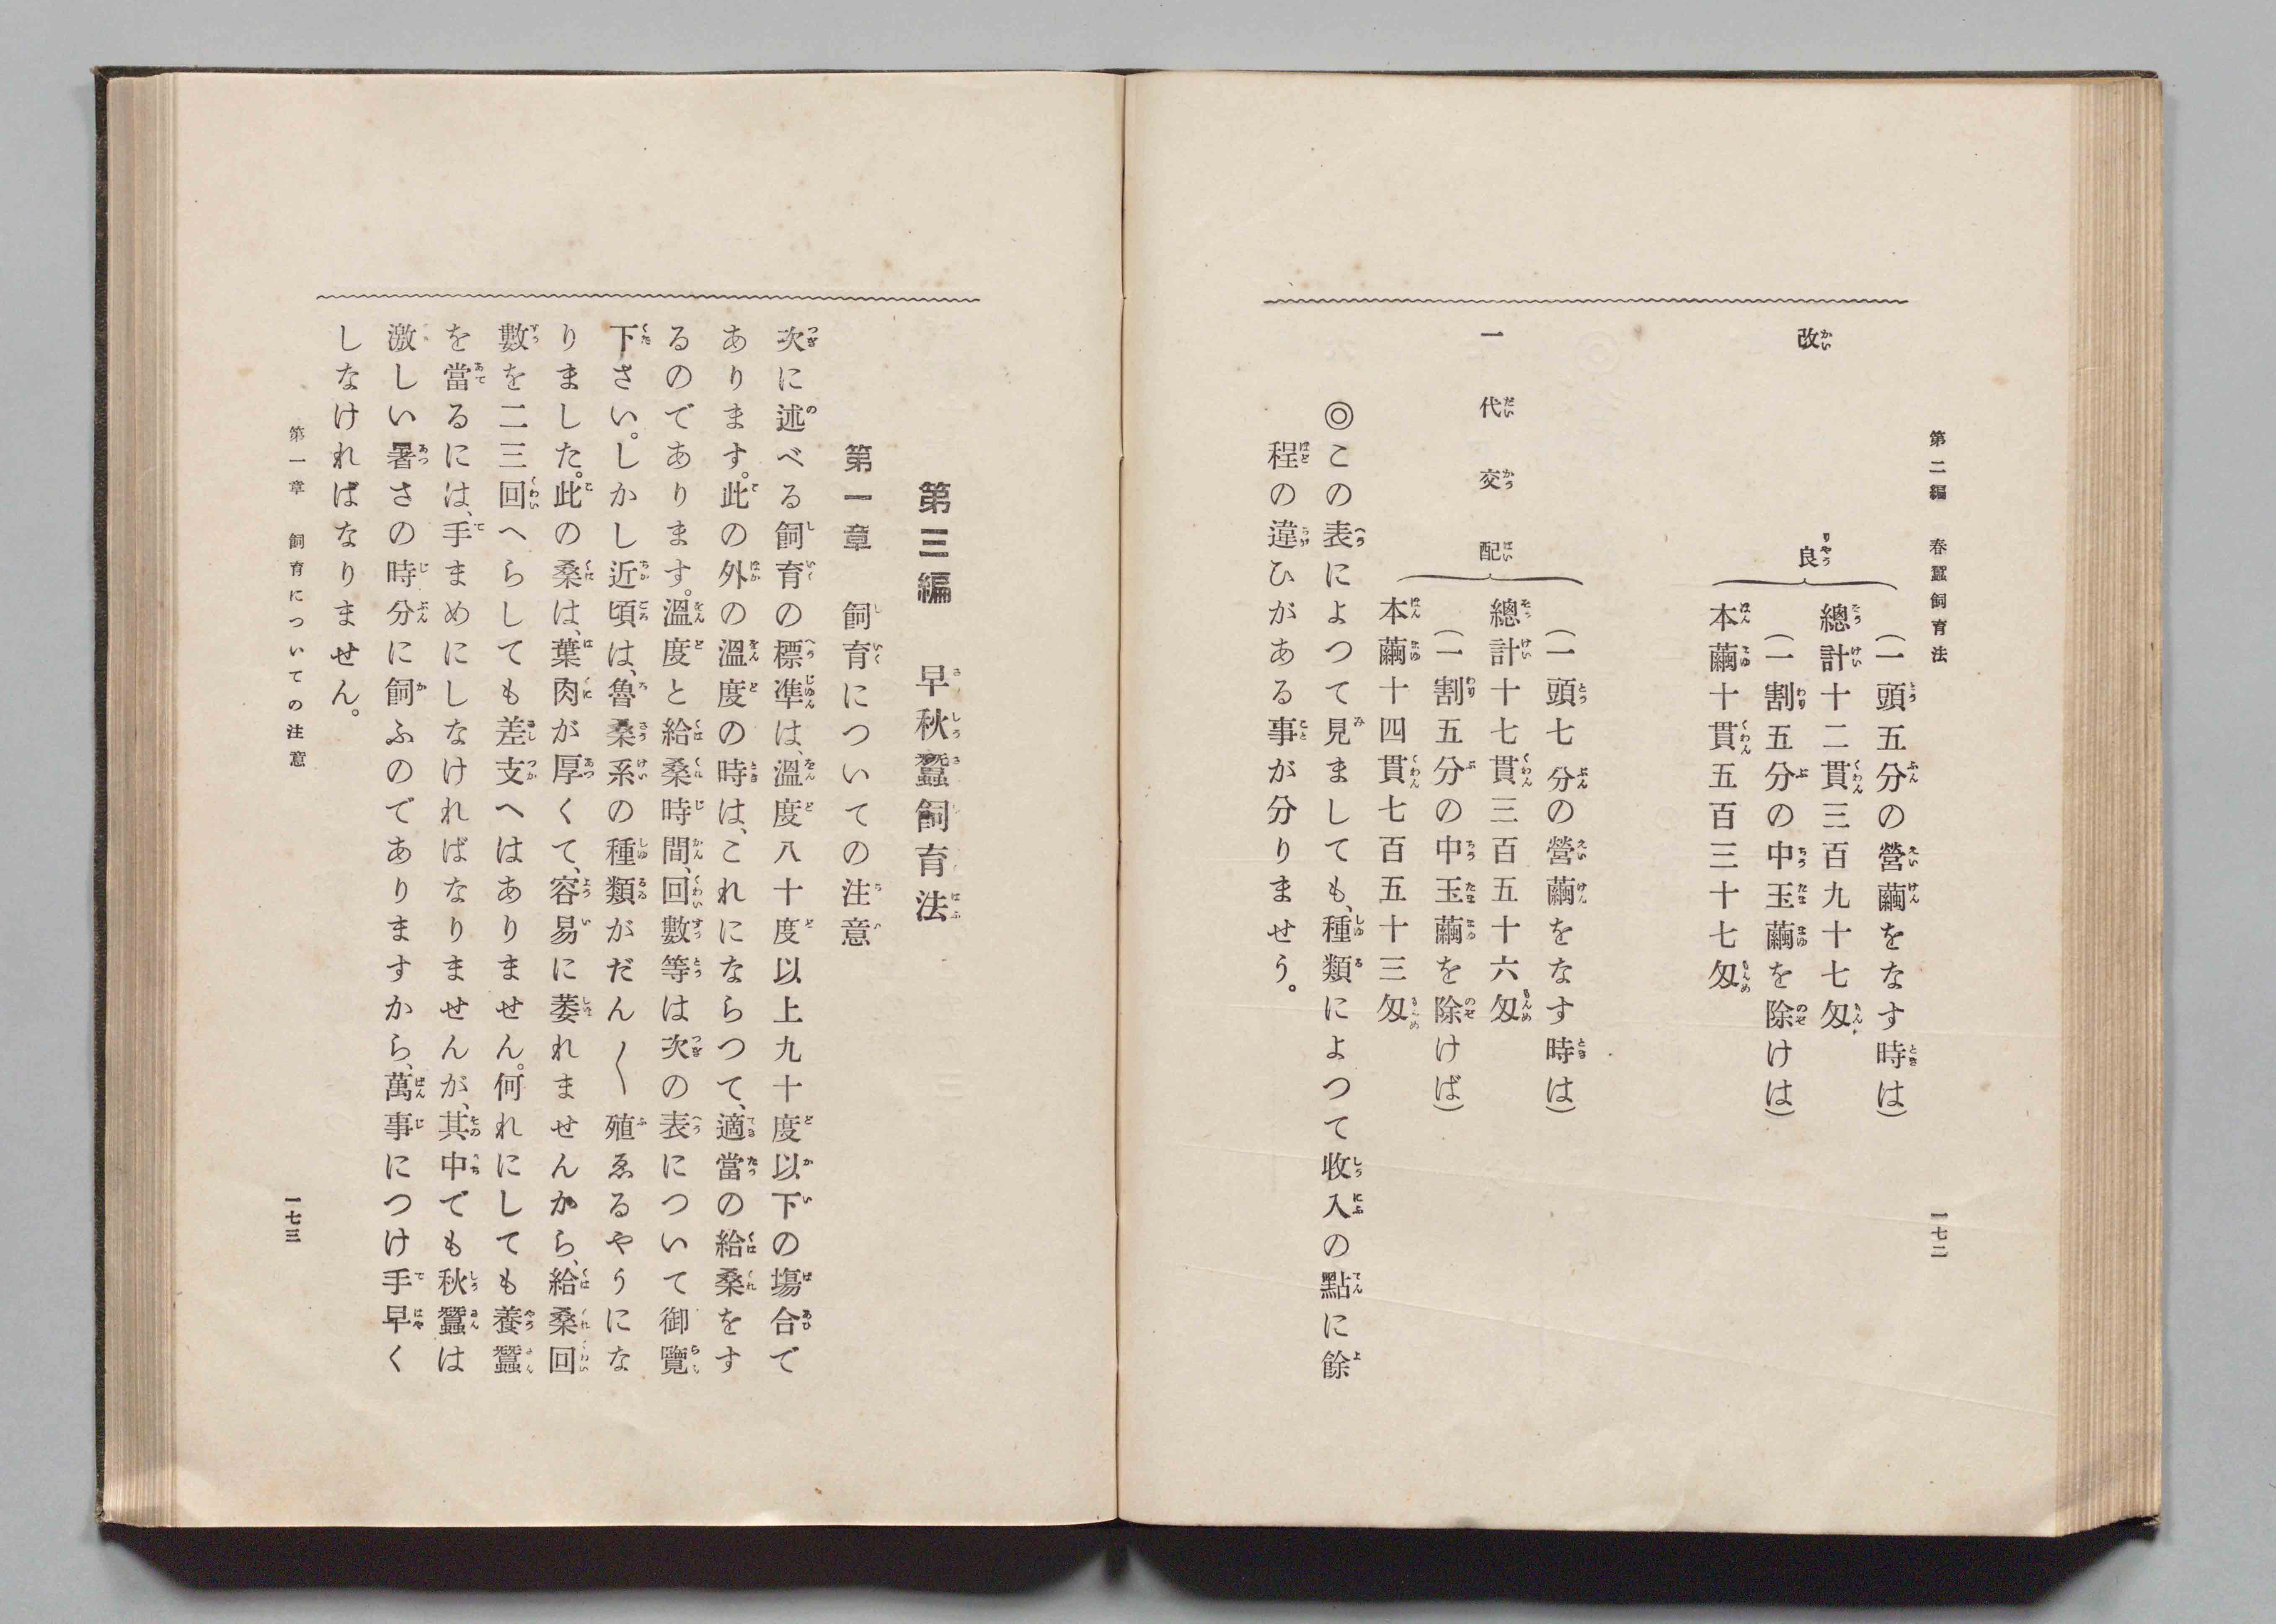 第二編　春蠶飼育法
一七二
改良
(一頭五分の營繭をなす時は)
總計十二貫三百九十七匁
(一割五分の中玉繭を除けば)
本繭十貫五百三十七匁
一代交配
(一頭七分の營繭をなす時は)
總計十七貫三百五十六匁
(一割五分の中玉繭を除けば)
本繭十四貫七百五十三匁
◎この表によつて見ましても、種類によつて收入の點に餘
程の違ひがある事が分りませう。
第三編　早秋蠶飼育法
第一章　飼育についての注意
次に述べる飼育の標準は、溫度八十度以上九十度以下の場合で
あります。此の外の溫度の時は、これにならつて、適當の給桑をす
るのであります。溫度と給桑時間、回數等は次の表について御覽
下さい。しかし近頃は、魯桑系の種類がだん〱殖ゑるやうにな
りました。此の桑は、葉肉が厚くて、容易に萎れませんから、給桑回
數を二三回へらしても差支へはありません。何れにしても養蠶
を當るには、手まめにしなければなりませんが、其中でも秋蠶は
激しい暑さの時分に飼ふのでありますから、萬事につけ手早く
しなければなりません。
第一章　飼育についての注意
一七三